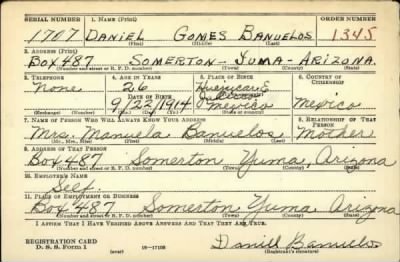 SERIAL NUMBER 1. NAME (Print) ORDER NUMBER
1707 DANIEL GOMES BANUELOS 1345
(First) (Middle) (Last)
2. ADDRESS (Print)
Box 487 SOMERTON - YUMA - ARIZONA.
(Number and street or R. F. D. number) (Town) (County) (State)
3. TELEPHONE 4. AGE IN YEARS 5. PLACE OF BIRTH 6. COUNTRY OF CITIZENSHIP
None 26
DATE OF BIRTH
9/22/1914 Mexico Mexico
(Exchange) (Number) (Mo.) (Day) (Yr.) (State or country)
7. NAME OF PERSON WHO WILL ALWAYS KNOW YOUR ADDRESS 8. RELATIONSHIP OF THAT PERSON
Mrs. Manuela Banuelos Mother
(Mr., Mrs., Miss) (First) (Middle) (Last)
9. ADDRESS OF THAT PERSON
Box 487 Somerton Yuma, Arizona
(Number and street or R. F. D. number) (Town) (County) (State)
10. EMPLOYER'S NAME
Self.
11. PLACE OF EMPLOYMENT OR BUSINESS
Box 487 Somerton Yuma, Arizona
(Number and street or R. F. D. number) (Town) (County) (State)
I AFFIRM THAT I HAVE VERIFIED ABOVE ANSWERS AND THAT THEY ARE TRUE.
REGISTRATION CARD
D. S. S. Form 1 (over) 16—17105 Daniel Banuelos
(Registrant's signature)